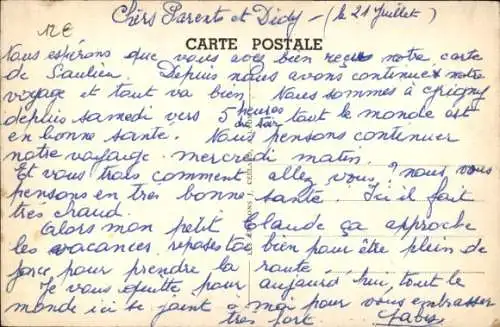 12€
Chers Parents et Didy - (le 21 Juillet)
CARTE POSTALE
Nous espérons que vous avez bien reçus notre carte
de Saulieu. Depuis nous avons continuer notre
voyage et tout va bien. Nous sommes à
depuis samedi vers 5 heures du soir tout le monde est
en bonne santé. Nous pensons continuer
notre voyage mercredi matin.
Et vous trois comment allez vous? nous vous
pensons en très bonne santé. Ici il fait
très chaud.
Alors mon petit Claude ça approche
les vacances reposes toi bien pour être plein de
force pour prendre la route.
Je vous quitte pour aujourd'hui, tout le
monde ici se joint à moi pour vous embrasser
très fort.